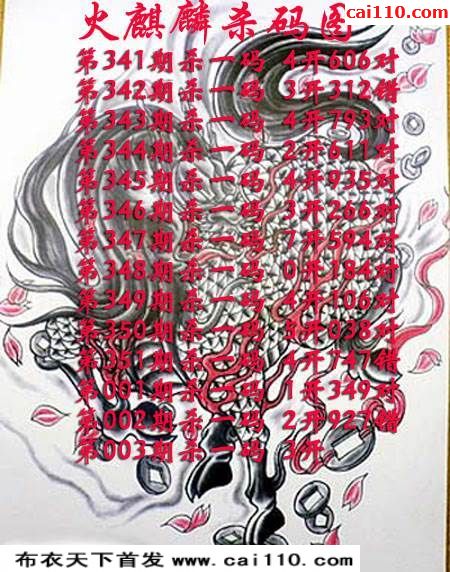 cai110.com
火麒麟杀码图
第341期杀一码 4开606对
第342期杀一码 3开312错
第343期杀一码 4开793对
第344期杀一码 2开611对
第345期杀一码 4开935对
第346期杀一码 3开266对
第347期杀一码 7开594对
第348期杀一码 0开184对
第349期杀一码 4开106对
第350期杀一码 5开038对
第351期杀一码 4开747错
第001期杀一码 1开349对
第002期杀一码 2开927错
第003期杀一码 3开
布衣天下首发 www.cai110.com